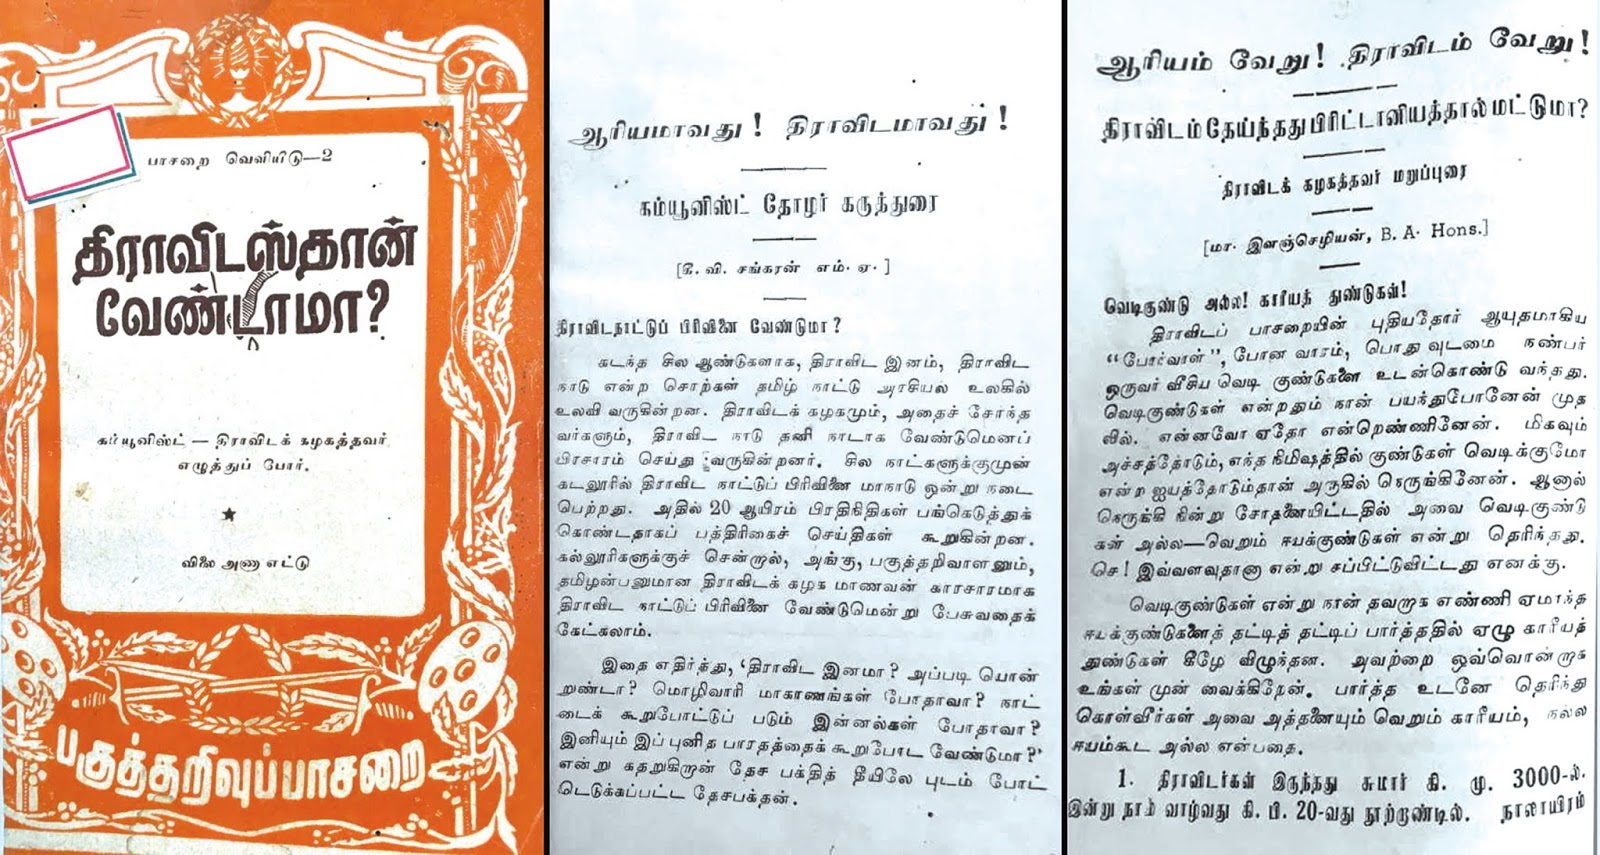 பாசறை வெளியீடு—2
திராவிடஸ்தான்
வேண்டாமா?
கம்யூனிஸ்ட் — திராவிடக் கழகத்தவர்
எழுத்துப் போர்.
விலை அணா எட்டு
பகுத்தறிவுப்பாசறை
ஆரியமாவது! திராவிடமாவது!
கம்யூனிஸ்ட் தோழர் கருத்துரை
வி. சங்கரன் எம். ஏ.]
திராவிடநாட்டுப் பிரிவினை வேண்டுமா?
கடந்த சில ஆண்டுகளாக, திராவிட இனம், திராவிட
நாடு என்ற சொற்கள் தமிழ் நாட்டு அரசியல் உலகில்
உலவி வருகின்றன. திராவிடக் கழகமும், அதைச் சேர்ந்த
வர்களும், திராவிட நாடு தனி நாடாக வேண்டுமெனப்
பிரசாரம் செய்து வருகின்றனர். சில நாட்களுக்குமுன்
கடலூரில் திராவிட நாட்டுப் பிரிவினை மாநாடு ஒன்று நடை
பெற்றது. அதில் 20 ஆயிரம் பிரதிநிதிகள் பங்கெடுத்துக்
கொண்டதாகப் பத்திரிகைச் செய்திகள் கூறுகின்றன.
கல்லூரிகளுக்குச் சென்றால், அங்கு, பகுத்தறிவாளனும்,
தமிழன்பனுமான திராவிடக் கழக மாணவன் காரசாரமாக
திராவிட நாட்டுப் பிரிவினை வேண்டுமென்று பேசுவதைக்
கேட்கலாம்.
இதை எதிர்த்து, ‘திராவிட இனமா? அப்படி யொன்
றுண்டா? மொழிவாரி மாகாணங்கள் போதாவா? நாட்
டைக் கூறுபோட்டுப் படும் இன்னல்கள் போதாவா?
இனியும் இப் புனித பாரதத்தைக் கூறுபோட வேண்டுமா?’
என்று கதறுகிறான் தேச பக்தித் தீயிலே புடம் போட்
டெடுக்கப்பட்ட தேசபக்தன்.
ஆரியம் வேறு! திராவிடம் வேறு!
திராவிடம் தேய்ந்தது பிரிட்டானியத்தால் மட்டுமா?
திராவிடக் கழகத்தவர் மறுப்புரை
[மா. இளஞ்செழியன், B. A. Hons.]
வெடிகுண்டு அல்ல! காரியத் துண்டுகள்!
திராவிடப் பாசறையின் புதியதோர் ஆயுதமாகிய
“போர்வாள்”, போன வாரம், பொது வுடமை நண்பர்
ஒருவர் வீசிய வெடி குண்டுகளை உடன்கொண்டு வந்தது.
வெடிகுண்டுகள் என்றதும் நான் பயந்துபோனேன் முத
லில். என்னவோ ஏதோ என்றெண்ணினேன். மிகவும்
அச்சத்தோடும், எந்த நிமிஷத்தில் குண்டுகள் வெடிக்குமோ
என்ற ஐயத்தோடும்தான் அருகில் நெருங்கினேன். ஆனால்
நெருங்கி நின்று சோதனையிட்டதில் அவை வெடிகுண்டு
கள் அல்ல—வெறும் ஈயக்குண்டுகள் என்று தெரிந்தது.
சே! இவ்வளவுதானா என்று சப்பிட்டுவிட்டது எனக்கு.
வெடிகுண்டுகள் என்று நான் தவறாக எண்ணி ஏமாந்த
ஈயக்குண்டுகளைத் தட்டித் தட்டிப் பார்த்ததில் ஏழு காரீயத்
துண்டுகள் கீழே விழுந்தன. அவற்றை ஒவ்வொன்றாக
உங்கள் முன் வைக்கிறேன். பார்த்த உடனே தெரிந்து
கொள்வீர்கள் அவை அத்தனையும் வெறும் காரீயம், நல்ல
ஈயம்கூட அல்ல என்பதை.
1. திராவிடர்கள் இருந்தது சுமார் கி. மு. 3000-ல்.
இன்று நாம் வாழ்வது கி. பி. 20-வது நூற்றாண்டில். நாலாயிரம்